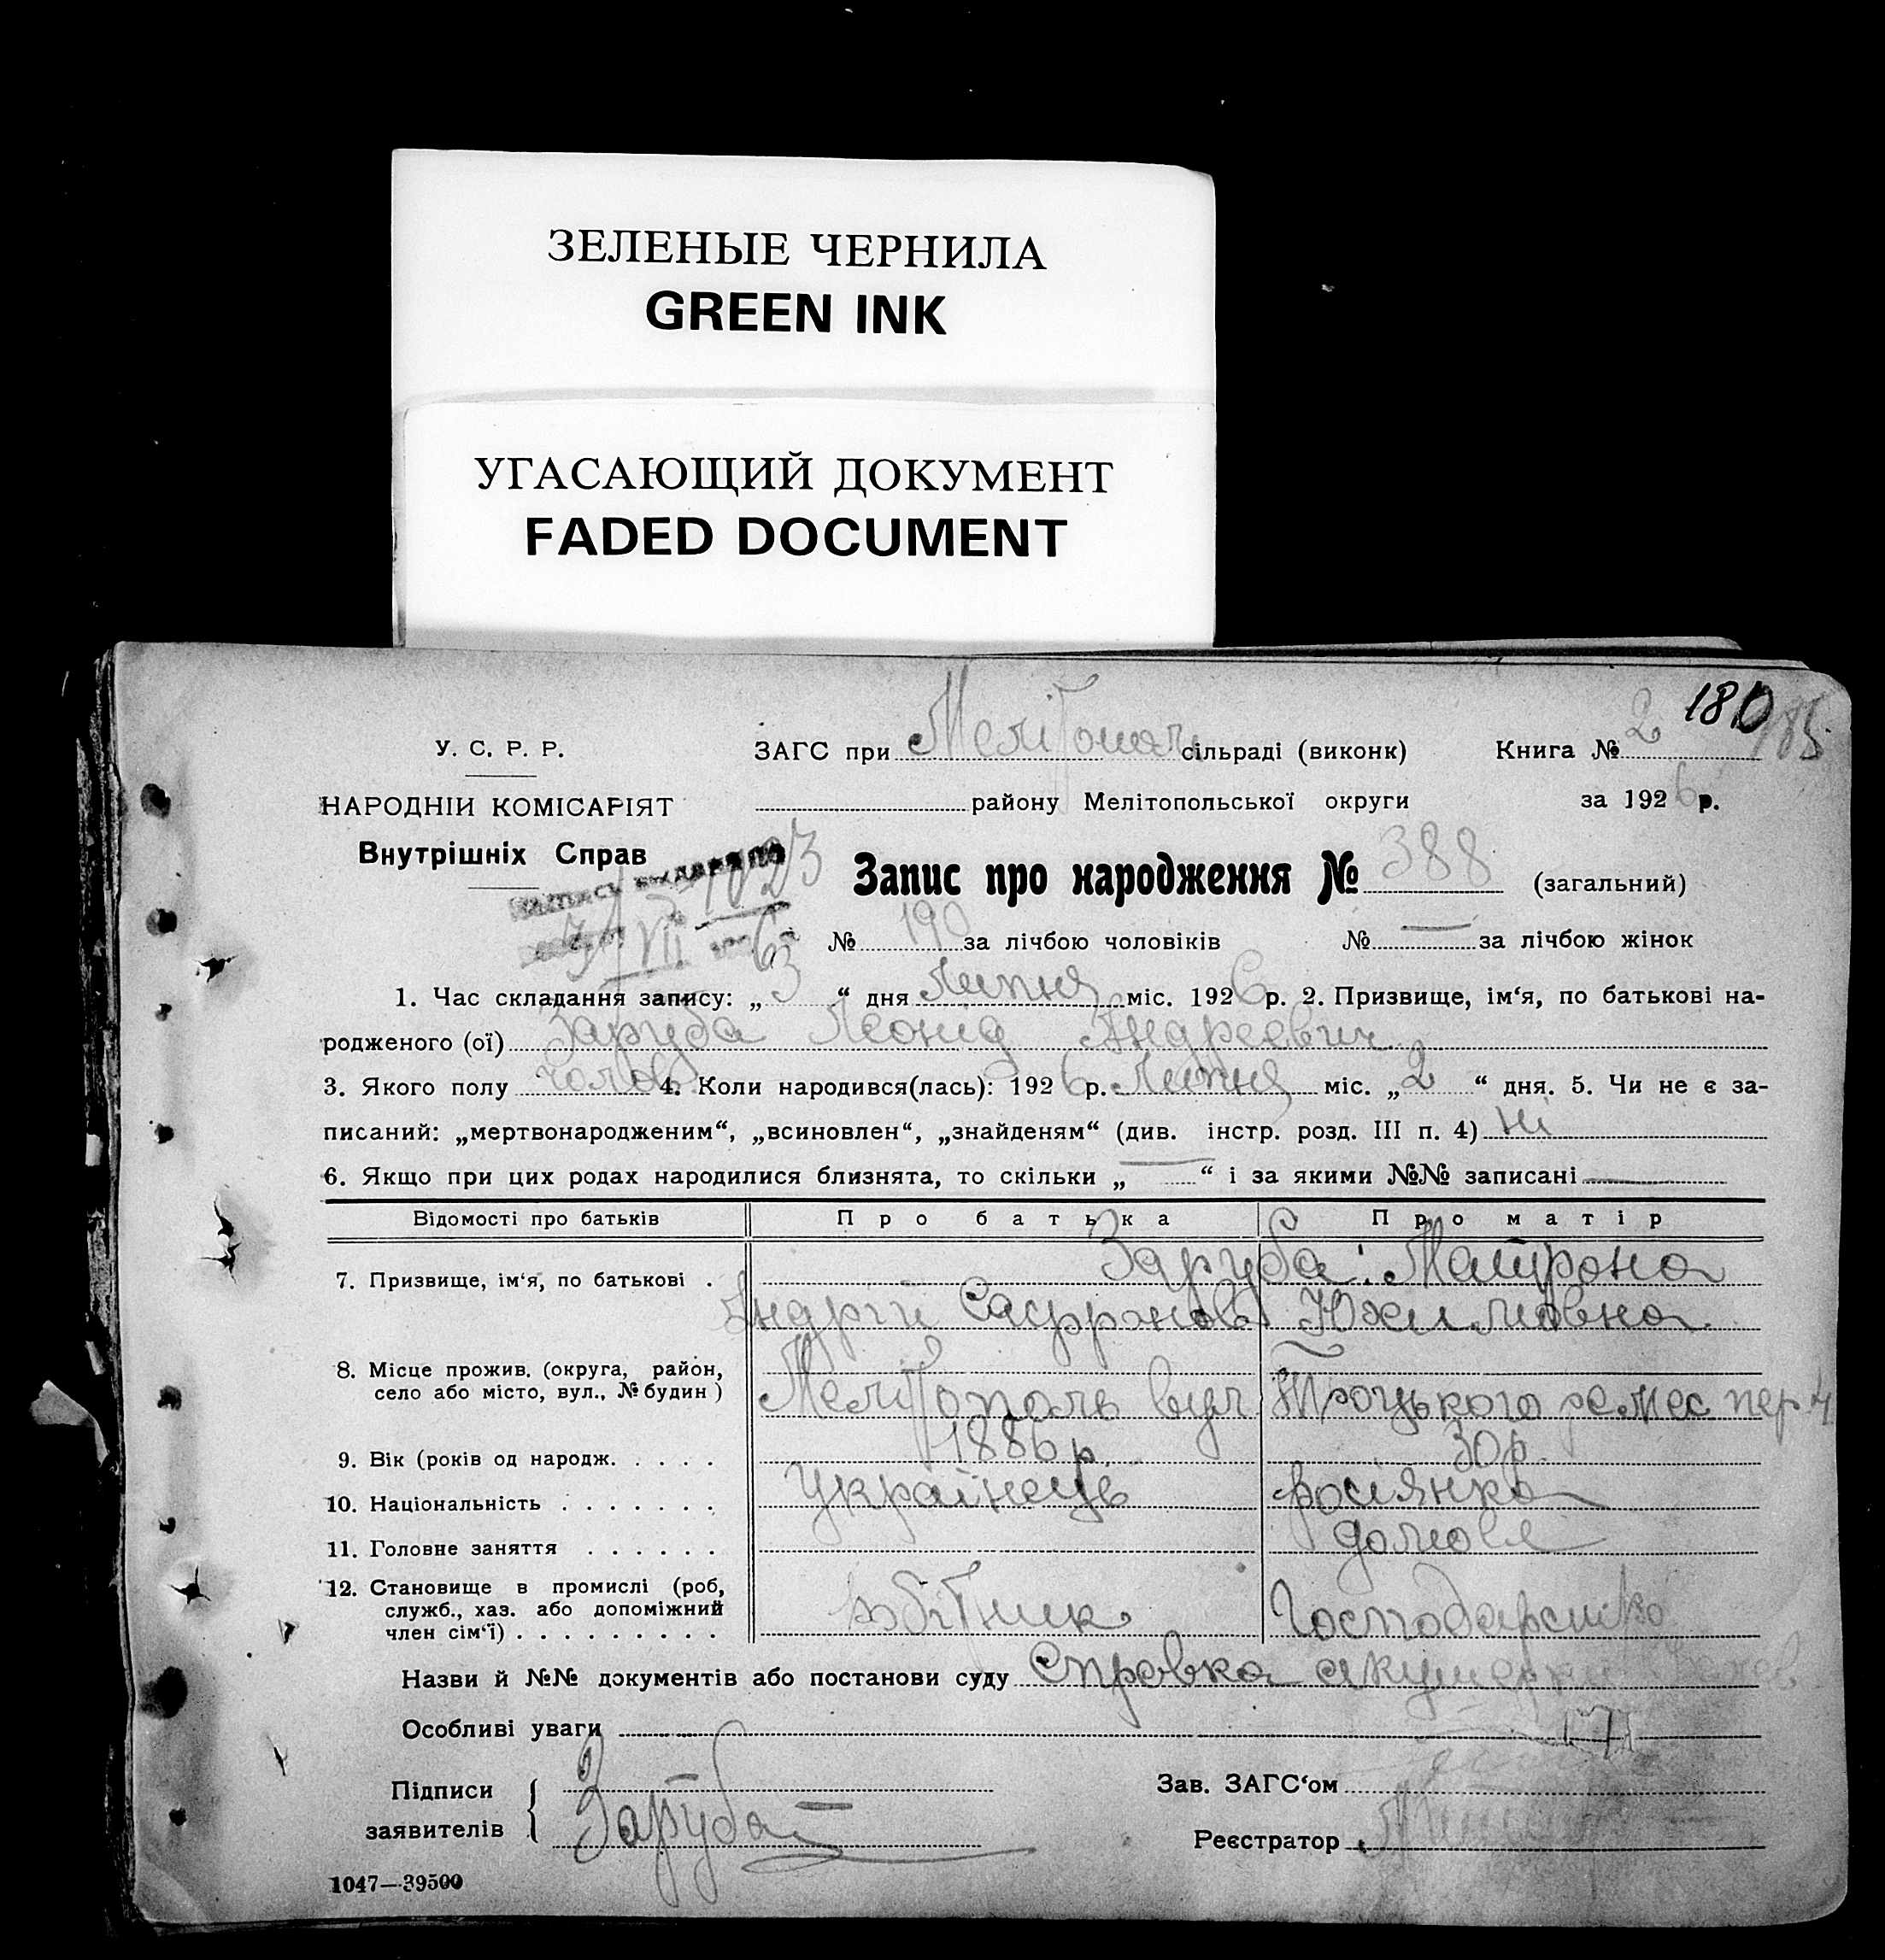 ЗЕЛЕНЫЕ ЧЕРНИЛА
GREEN INK
УГАСАЮЩИЙ ДОКУМЕНТ
FADED DOCUMENT
2 180 185
У. С. Р. Р. ЗАГС при сільраді (виконк) Книга №
НАРОДНІЙ КОМІСАРІЯТ району Мелітопольської округи за 1926 р.
Внутрішніх Справ
Запис про народження № 388 (загальний)
№ 190 за лічбою чоловіків № — за лічбою жінок
1. Час складання запису: „3“ дня Липня міс. 1926 р. 2. Призвище, ім‘я, по батькові на-
родженого (ої) Заруба Леонід Андреевич
3. Якого полу голов 4. Коли народився(лась): 1926 р. Липня міс. „2“ дня. 5. Чи не є за-
писаний: „мертвонародженим“, „всиновлен“, „знайденям“ (див. інстр. розд. III п. 4) Ні
6. Якщо при цих родах народилися близнята, то скільки „ — “ і за якими №№ записані —
Відомості про батьків Про батька Про матір
7. Призвище, ім‘я, по батькові . Заруба Матрона
Андрій Юхимовна
8. Місце прожив. (округа, район,
село або місто, вул., № будин ) Мелітополь вул Троцького ремес пер 4
9. Вік (років од народж. . . . . 1886 р. 30 р.
10. Національність . . . . . . . Українець росіянка
11. Головне заняття . . . . . . домовл
12. Становище в промислі (роб,
служб., хаз. або допоміжний робітник Господарситво
член сім‘ї) . . . . . . . . .
Назви й №№ документів або постанови суду Справка акушерки
Особливі уваги
Підписи Зав. ЗАГС‘ом
заявителів Заруба Реєстратор
1047—39500